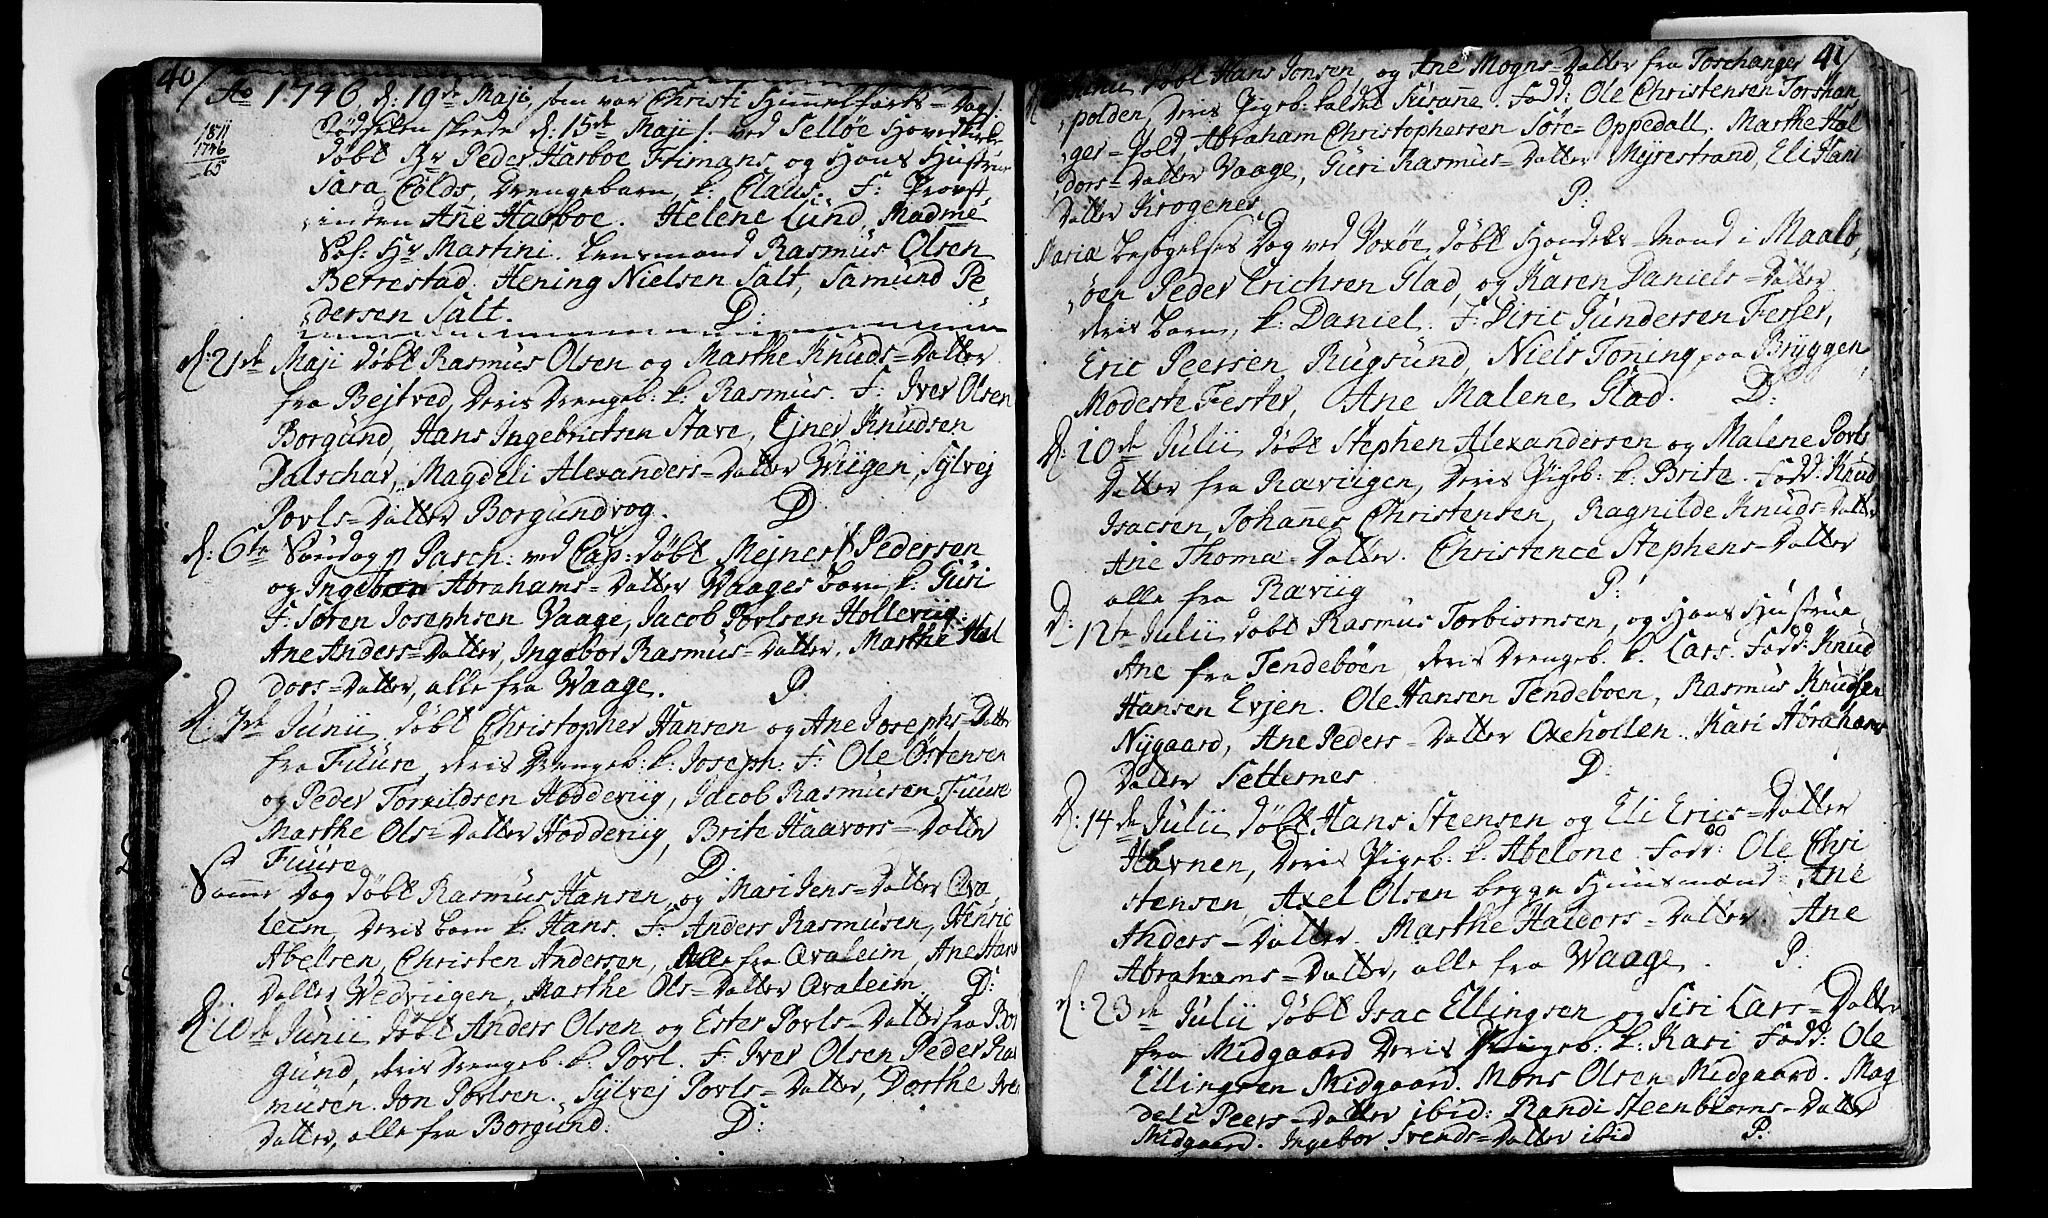 40/
Ao 1746, d: 19de Maji, som var Christi Himmelfarts=Dag /:
1811
1746
65
Fødselen skeede d: 15de Maji /: ved Selløe Hovedkirke
døbt Hr Peder Harboe Frimans og Hans Hustrue
Sara Cölds, Drengebarn, k: Claus. F: Provst
inden Anne Harboe. Helene Lund, Madme
Sal: Hr Martini. Lensmand Rasmus Olsen
Berrestad. Hening Nielsen Salt, Samund Pe
dersen Salt. D:
d: 21de Maji døbt Rasmus Olsen og Marthe Knuds=Datter
fra Bejtved, Deris Drengeb: k: Rasmus. F: Iver Olsen
Borgund, Hans Ingebrictsen Stave, Ejner Knudsen
Dalschar, Magdeli Alexanders=Datter Wiigen, Sylvej
Povls=Datter Borgundvog. D
d: 6te Søndag p Pasch: ved Cap: døbt Mejnert Pedersen
og Ingebor Abrahams=Datter Waages barn k: Guri
F: Søren Josephsen Vaage, Jacob Povlsen Holleviig
Ane Anders=Datter, Ingebor Rasmus=Datter, Marthe Hal
dors=Datter, alle fra Waage. P
d: 7de Junii døbt Christopher Hansen og Ane Josephs=Datter
fra Fuure, deris Drengeb: k: Joseph: F: Ole Ostensen
og Peder Torkildsen Hodderiig, Jacob Rasmusen Fuure
Marthe Ols=Datter Hodderiig, Brite Haavors=Datter
Fuure D:
Samme Dag døbt Rasmus Hansen, og Mari Jens=Datter Qva
leim, Deris barn k: Hans. F: Anders Rasmusen, Henric
Abelsen, Christen Andersen, Alle fra Qvaleim, Ane Hans
Datter Vedviigen, Marthe Ols=Datter Qvaleim. D:
d: 10de Junii døbt Anders Olsen og Ester Povls=Datter fra Bor
gund, deris Drengeb: k: Povl. F: Iver Olsen Peder Ras
musen. Jon Povlsen. Sylvej Povls=Datter, Dorthe Iver
Datter, alle fra Borgund. D:
41/
Junii døbt Hans Jonsen, og Ane Mogns=Datter fra Torschanger
polden, Deris Pigeb: kaldet Susanne. Fadd: Ole Christensen Torshan
ger=Pold, Abraham Christophersen Söre=Oppedall. Marthe Hal
dors=Datter Vaage, Guri Rasmus=Datter Myrestrand, Eli Hans
Datter Krogenes P:
Maria Besøgelses Dag ved Voxöe, døbt Handels=Mand i Maalö
öen Peder Erichsen Glad, og Karen Daniels=Datter
deris barn, k: Daniel. F: Diric Gundersen Fester,
Eric Peersen Rugsund, Niels Toning paa Bryggen
Modeste Fester, Ane Malene Glad. D:
d: 10de Julii døbt Stephen Alexandersen og Malene Povls
Datter fra Ræviigen, Deris Pigeb: k: Brite. Fadd: Knud
Isacsen, Johannes Christensen, Ragnilde Knuds=Datter
Ane Thoma=Datter. Christence Stephens=Datter
alle fra Ræviig P:
d: 12te Julii døbt Rasmus Torbiørnsen, og Hans Hustrue
Ane fra Tendeböen, deris Drengeb. k. Lars. Fadd: Knud
Hansen Evjen. Ole Hansen Tendeboen, Rasmus Knudsen
Nygaard, Ane Peders=Datter Oxehollen. Kari Abrahams
Datter Setternes D:
d: 14de Julii døbt Hans Steensen og Eli Erics=Datter
Havnen, Deris Pigeb: k. Abelone. Fadd: Ole Chri
stensen, Axel Olsen begge Huusmænd. Ane
Anders=Datter. Marthe Haldors=Datter Ane
Abrahams=Datter, alle fra Waage. P:
d: 23de Julii døbt Isac Ellingsen og Siri Lars=Datter
fra Midgaard Deris Pigeb: k: Kari Fadd: Ole
Ellingsen Midgaard. Mons Olsen Midgaard. Mag
deli Peers=Datter ibid: Randi Steenbiørns=Datter
Midgaard. Ingebor Svends=Datter ibid P: